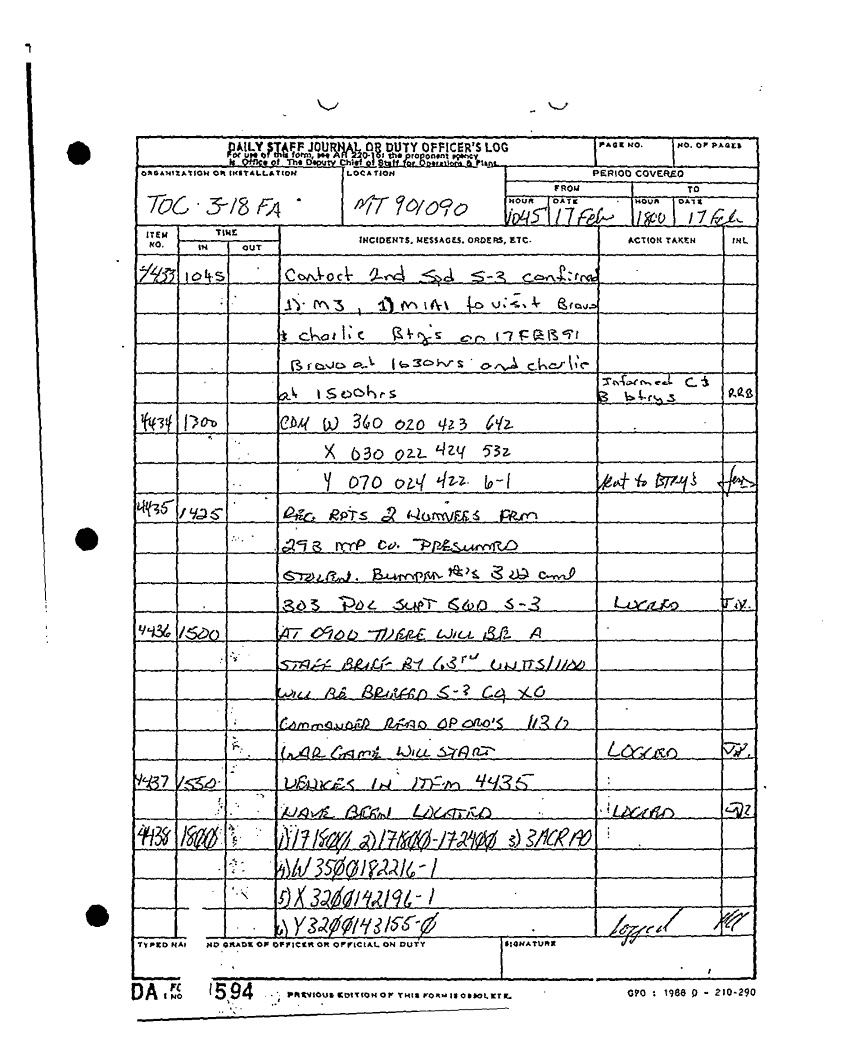 DAILY STAFF JOURNAL OR DUTY OFFICER'S LOG
For use of this form, see AR 220-15; the proponent agency
is Office of The Deputy Chief of Staff for Operations & Plans.
PAGE NO.
NO. OF PAGES
ORGANIZATION OR INSTALLATION
TOC · 3-18 FA
LOCATION
MT 901090
PERIOD COVERED
FROM TO
HOUR DATE HOUR DATE
1045 17 Feb 1800 17 Feb
ITEM NO. TIME IN OUT INCIDENTS, MESSAGES, ORDERS, ETC. ACTION TAKEN INL
4433 1045 Contact 2nd Sqd S-3 confirmed
1) M3, 1) M1A1 to visit Bravo
& charlie Btry's on 17FEB91
Bravo at 1630hrs and charlie
at 1500hrs Informed C & B btrys RRB
4434 1300 CDM W 360 020 423 642
X 030 022 424 532
Y 070 024 422 6-1 sent to BTRY's
4435 1425 REC RPTS 2 HUMVEES FRM
293 MP Co. PRESUMED
STOLEN. BUMPER #'s 322 and
303 POC SUPT SWO S-3 LOGGED
4436 1500 AT 0900 THERE WILL BE A
STAFF BRIEF BY 63RD UNITS/1100
WILL BE BRIEFED S-3 CO XO
COMMANDER READ OPORD'S 1130
WAR GAME WILL START LOGGED
4437 1550 VEHICLES IN ITEM 4435
HAVE BEEN LOCATED LOGGED
4438 1800 1) 171800 2) 171800-172400 3) 3ACR AO
4) W 3500182216-1
5) X 3200142196-1
6) Y 3200143155-0 logged
TYPED NA ND GRADE OF OFFICER OR OFFICIAL ON DUTY
SIGNATURE
DA 1594 PREVIOUS EDITION OF THIS FORM IS OBSOLETE.
GPO : 1988 O - 210-290